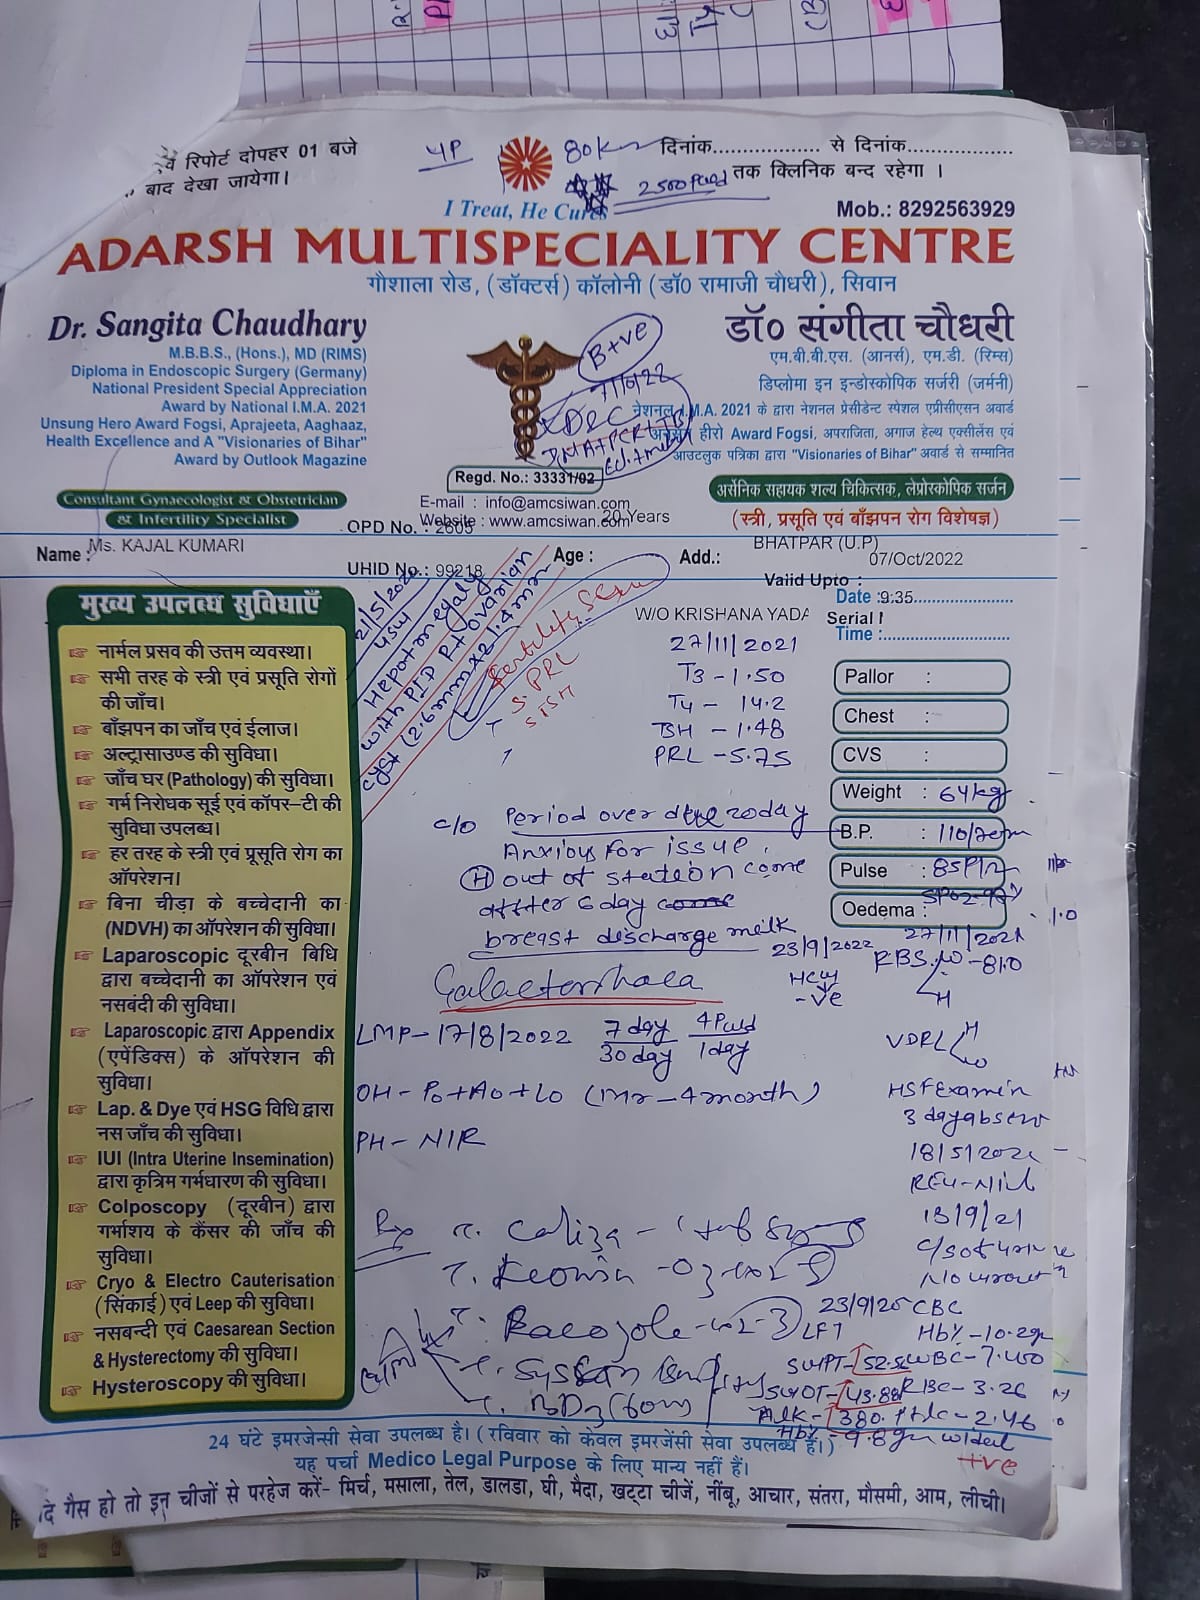 वं रिपोर्ट दोपहर 01 बजे
बाद देखा जायेगा।
4P
80km
दिनांक................. से दिनांक..................
2500 Paid तक क्लिनिक बन्द रहेगा ।
I Treat, He Cures
Mob.: 8292563929
ADARSH MULTISPECIALITY CENTRE
गौशाला रोड, (डॉक्टर्स) कॉलोनी (डॉ0 रामाजी चौधरी), सिवान
Dr. Sangita Chaudhary
M.B.B.S., (Hons.), MD (RIMS)
Diploma in Endoscopic Surgery (Germany)
National President Special Appreciation
Award by National I.M.A. 2021
Unsung Hero Award Fogsi, Aprajeeta, Aaghaaz,
Health Excellence and A "Visionaries of Bihar"
Award by Outlook Magazine
Consultant Gynaecologist & Obstetrician
& Infertility Specialist
B+ve
D&C
Regd. No.: 33331/02
E-mail : info@amcsiwan.com
Website : www.amcsiwan.com
डॉ० संगीता चौधरी
एम.बी.बी.एस. (आनर्स), एम.डी. (रिम्स)
डिप्लोमा इन इन्डोस्कोपिक सर्जरी (जर्मनी)
नेशनल I.M.A. 2021 के द्वारा नेशनल प्रेसीडेन्ट स्पेशल एप्रीसीएसन अवार्ड
अनसंग हीरो Award Fogsi, अपराजिता, अगाज हेल्थ एक्सीलेंस एवं
आउटलुक पत्रिका द्वारा "Visionaries of Bihar" अवार्ड से सम्मानित
अर्सेनिक सहायक शल्य चिकित्सक, लेप्रोस्कोपिक सर्जन
(स्त्री, प्रसूति एवं बाँझपन रोग विशेषज्ञ)
OPD No. : 2605
20 Years
Name : Ms. KAJAL KUMARI
Age :
Add.: BHATPAR (U.P)
07/Oct/2022
UHID No.: 99218
Valid Upto :
Date :9:35
W/O KRISHANA YADA
Serial
Time :
मुख्य उपलब्ध सुविधाएँ
नार्मल प्रसव की उत्तम व्यवस्था।
सभी तरह के स्त्री एवं प्रसूति रोगों
की जाँच।
बाँझपन का जाँच एवं ईलाज।
अल्ट्रासाउण्ड की सुविधा।
जाँच घर (Pathology) की सुविधा।
गर्भ निरोधक सूई एवं कॉपर–टी की
सुविधा उपलब्ध।
हर तरह के स्त्री एवं प्रसूति रोग का
ऑपरेशन।
बिना चीड़ा के बच्चेदानी का
(NDVH) का ऑपरेशन की सुविधा।
Laparoscopic दूरबीन बिधि
द्वारा बच्चेदानी का ऑपरेशन एवं
नसबंदी की सुविधा।
Laparoscopic द्वारा Appendix
(एपेंडिक्स) के ऑपरेशन की
सुविधा।
Lap. & Dye एवं HSG विधि द्वारा
नस जाँच की सुविधा।
IUI (Intra Uterine Insemination)
द्वारा कृत्रिम गर्भधारण की सुविधा।
Colposcopy (दूरबीन) द्वारा
गर्भाशय के कैंसर की जाँच की
सुविधा।
Cryo & Electro Cauterisation
(सिंकाई) एवं Leep की सुविधा।
नसबन्दी एवं Caesarean Section
& Hysterectomy की सुविधा।
Hysteroscopy की सुविधा।
USW
Hepatomegaly
with PID Rt ovarian
cyst (2.6mmx21.4mm
S. PRL
27/11/2021
T3 -1.50
T4 - 14.2
TSH - 1.48
PRL -5.75
Pallor :
Chest :
CVS :
Weight : 64kg
B.P. : 110/70
Pulse : 85
Oedema :
c/o Period over due 20day
Anxious for issue.
(H) out of station come
after 6 day
breast discharge milk
Galactorrhoea
23/9/2022
HCG
-ve
27/11/2021
RBS -81.0
LMP-17/8/2022 7 day 4 Pad
30 day 1 day
VDRL
OH - P0+A0+L0 (Mr - 4 month)
HSF Examin
3 day absent
PH- NIR
13/9/21
Rx
23/9/20 CBC
LFT Hb% -10.2gm
SGPT- 52.5 WBC-7.400
SGOT-43.88 RBC- 3.26
Alk- 380.
Hb% -9.8gm widal
+ve
24 घंटे इमरजेन्सी सेवा उपलब्ध है। (रविवार को केवल इमरजेंसी सेवा उपलब्ध है।)
यह पर्चा Medico Legal Purpose के लिए मान्य नहीं हैं।
गैस हो तो इन चीजों से परहेज करें- मिर्च, मसाला, तेल, डालडा, घी, मैदा, खट्टा चीजें, नींबू, आचार, संतरा, मौसमी, आम, लीची।